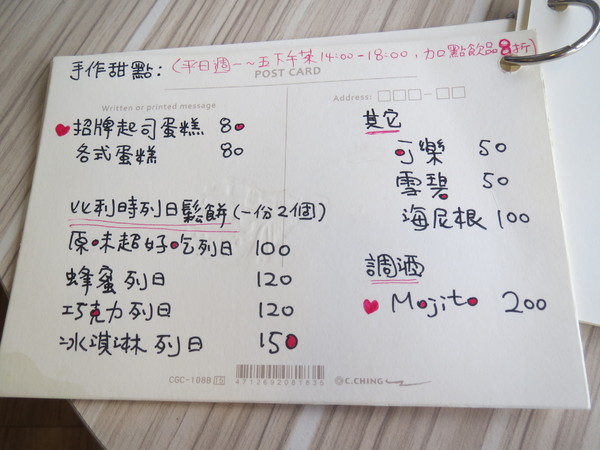 手作甜點：(平日週一～五下午茶14:00-18:00，加點飲品8折)
POST CARD
Written or printed message
Address:
招牌起司蛋糕 80
各式蛋糕 80
比利時列日鬆餅(一份2個)
原味超好吃列日 100
蜂蜜列日 120
巧克力列日 120
冰淇淋列日 150
其它
可樂 50
雪碧 50
海尼根 100
調酒
Mojito 200
CDC-108B 15
4712892081835
C.CHING